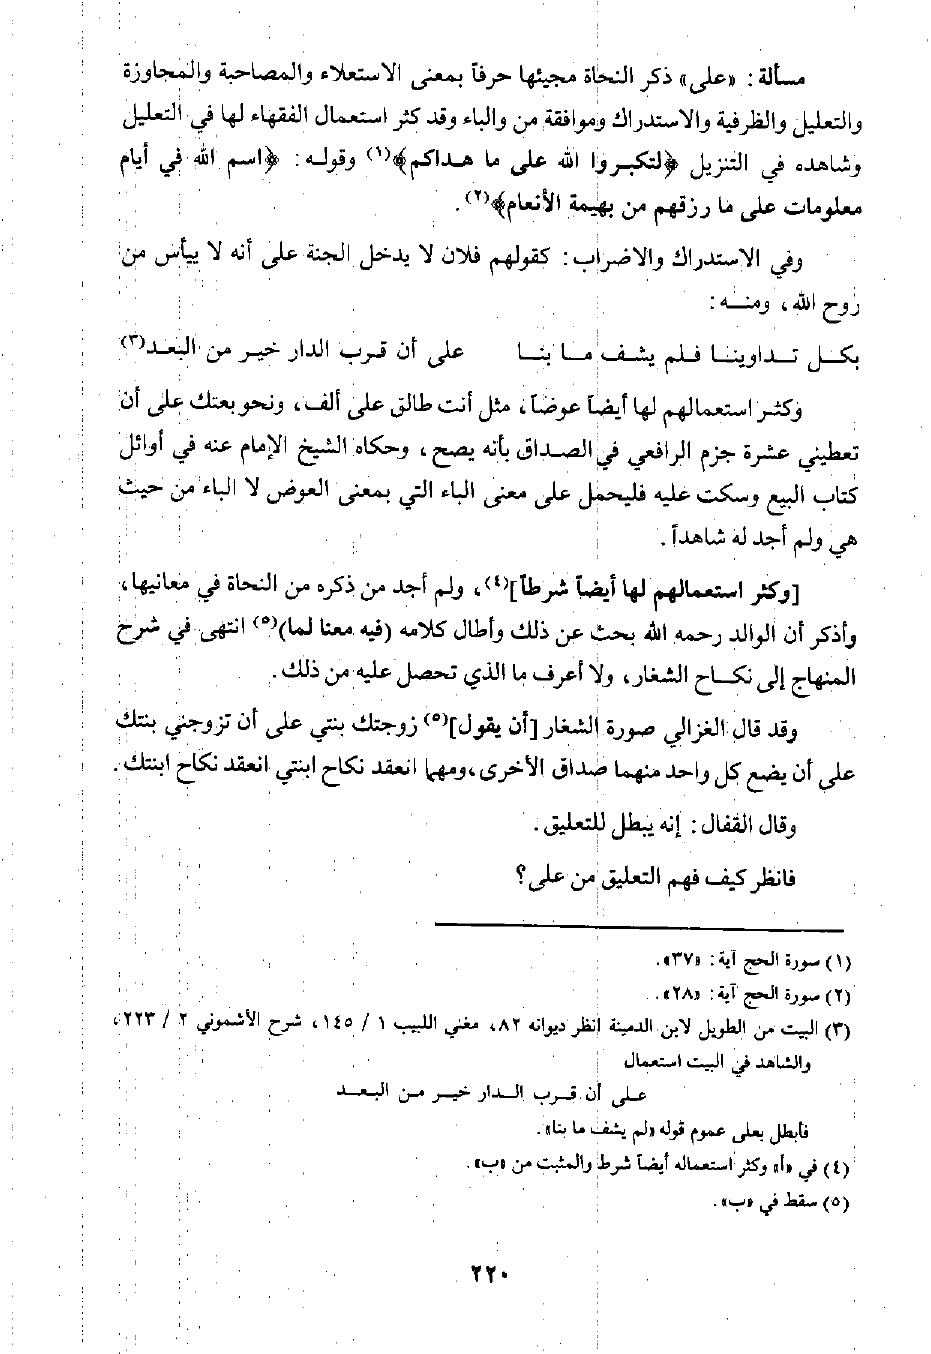 مسألة : «على» ذكر النحاة مجيئها حرفاً بمعنى الاستعلاء والمصاحبة والمجاوزة
والتعليل والظرفية والاستدراك وموافقة من والباء وقد كثر استعمال الفقهاء لها في التعليل
وشاهده في التنزيل ﴿لتكبروا الله على ما هداكم﴾(١) وقوله : ﴿اسم الله في أيام
معلومات على ما رزقهم من بهيمة الأنعام﴾(٢) .
وفي الاستدراك والاضراب : كقولهم فلان لا يدخل الجنة على أنه لا ييأس من
روح الله ، ومنه :
بكل تداوينا فلم يشف ما بنا على أن قرب الدار خير من البعد(٣)
وكثر استعمالهم لها أيضاً عوضاً، مثل أنت طالق على ألف، ونحو بعتك على أن
تعطيني عشرة جزم الرافعي في الصداق بأنه يصح ، وحكاه الشيخ الإمام عنه في أوائل
كتاب البيع وسكت عليه فليحمل على معنى الباء التي بمعنى العوض لا الباء من حيث
هي ولم أجد له شاهداً .
[وكثر استعمالهم لها أيضاً شرطاً](٤)، ولم أجد من ذكره من النحاة في معانيها،
وأذكر أن الوالد رحمه الله بحث عن ذلك وأطال كلامه (فيه معنا لما)(٥) انتهى في شرح
المنهاج إلى نكاح الشغار، ولا أعرف ما الذي تحصل عليه من ذلك .
وقد قال الغزالي صورة الشغار [أن يقول](٥) زوجتك بنتي على أن تزوجني بنتك
على أن يضع كل واحد منهما صداق الأخرى ،ومهما انعقد نكاح ابنتي انعقد نكاح ابنتك .
وقال القفال : إنه يبطل للتعليق .
فانظر كيف فهم التعليق من على ؟
(١) سورة الحج آية : «٣٧» .
(٢) سورة الحج آية : «٢٨» .
(٣) البيت من الطويل لابن الدمينة انظر ديوانه ٨٢، مغني اللبيب ١ / ١٤٥، شرح الأشموني ٢ / ٢٢٣،
والشاهد في البيت استعمال
على أن قرب الدار خير من البعد
فأبطل بعلى عموم قوله «لم يشف ما بنا» .
(٤) في «أ» وكثر استعماله أيضاً شرط والمثبت من «ب» .
(٥) سقط في «ب» .
٢٢٠